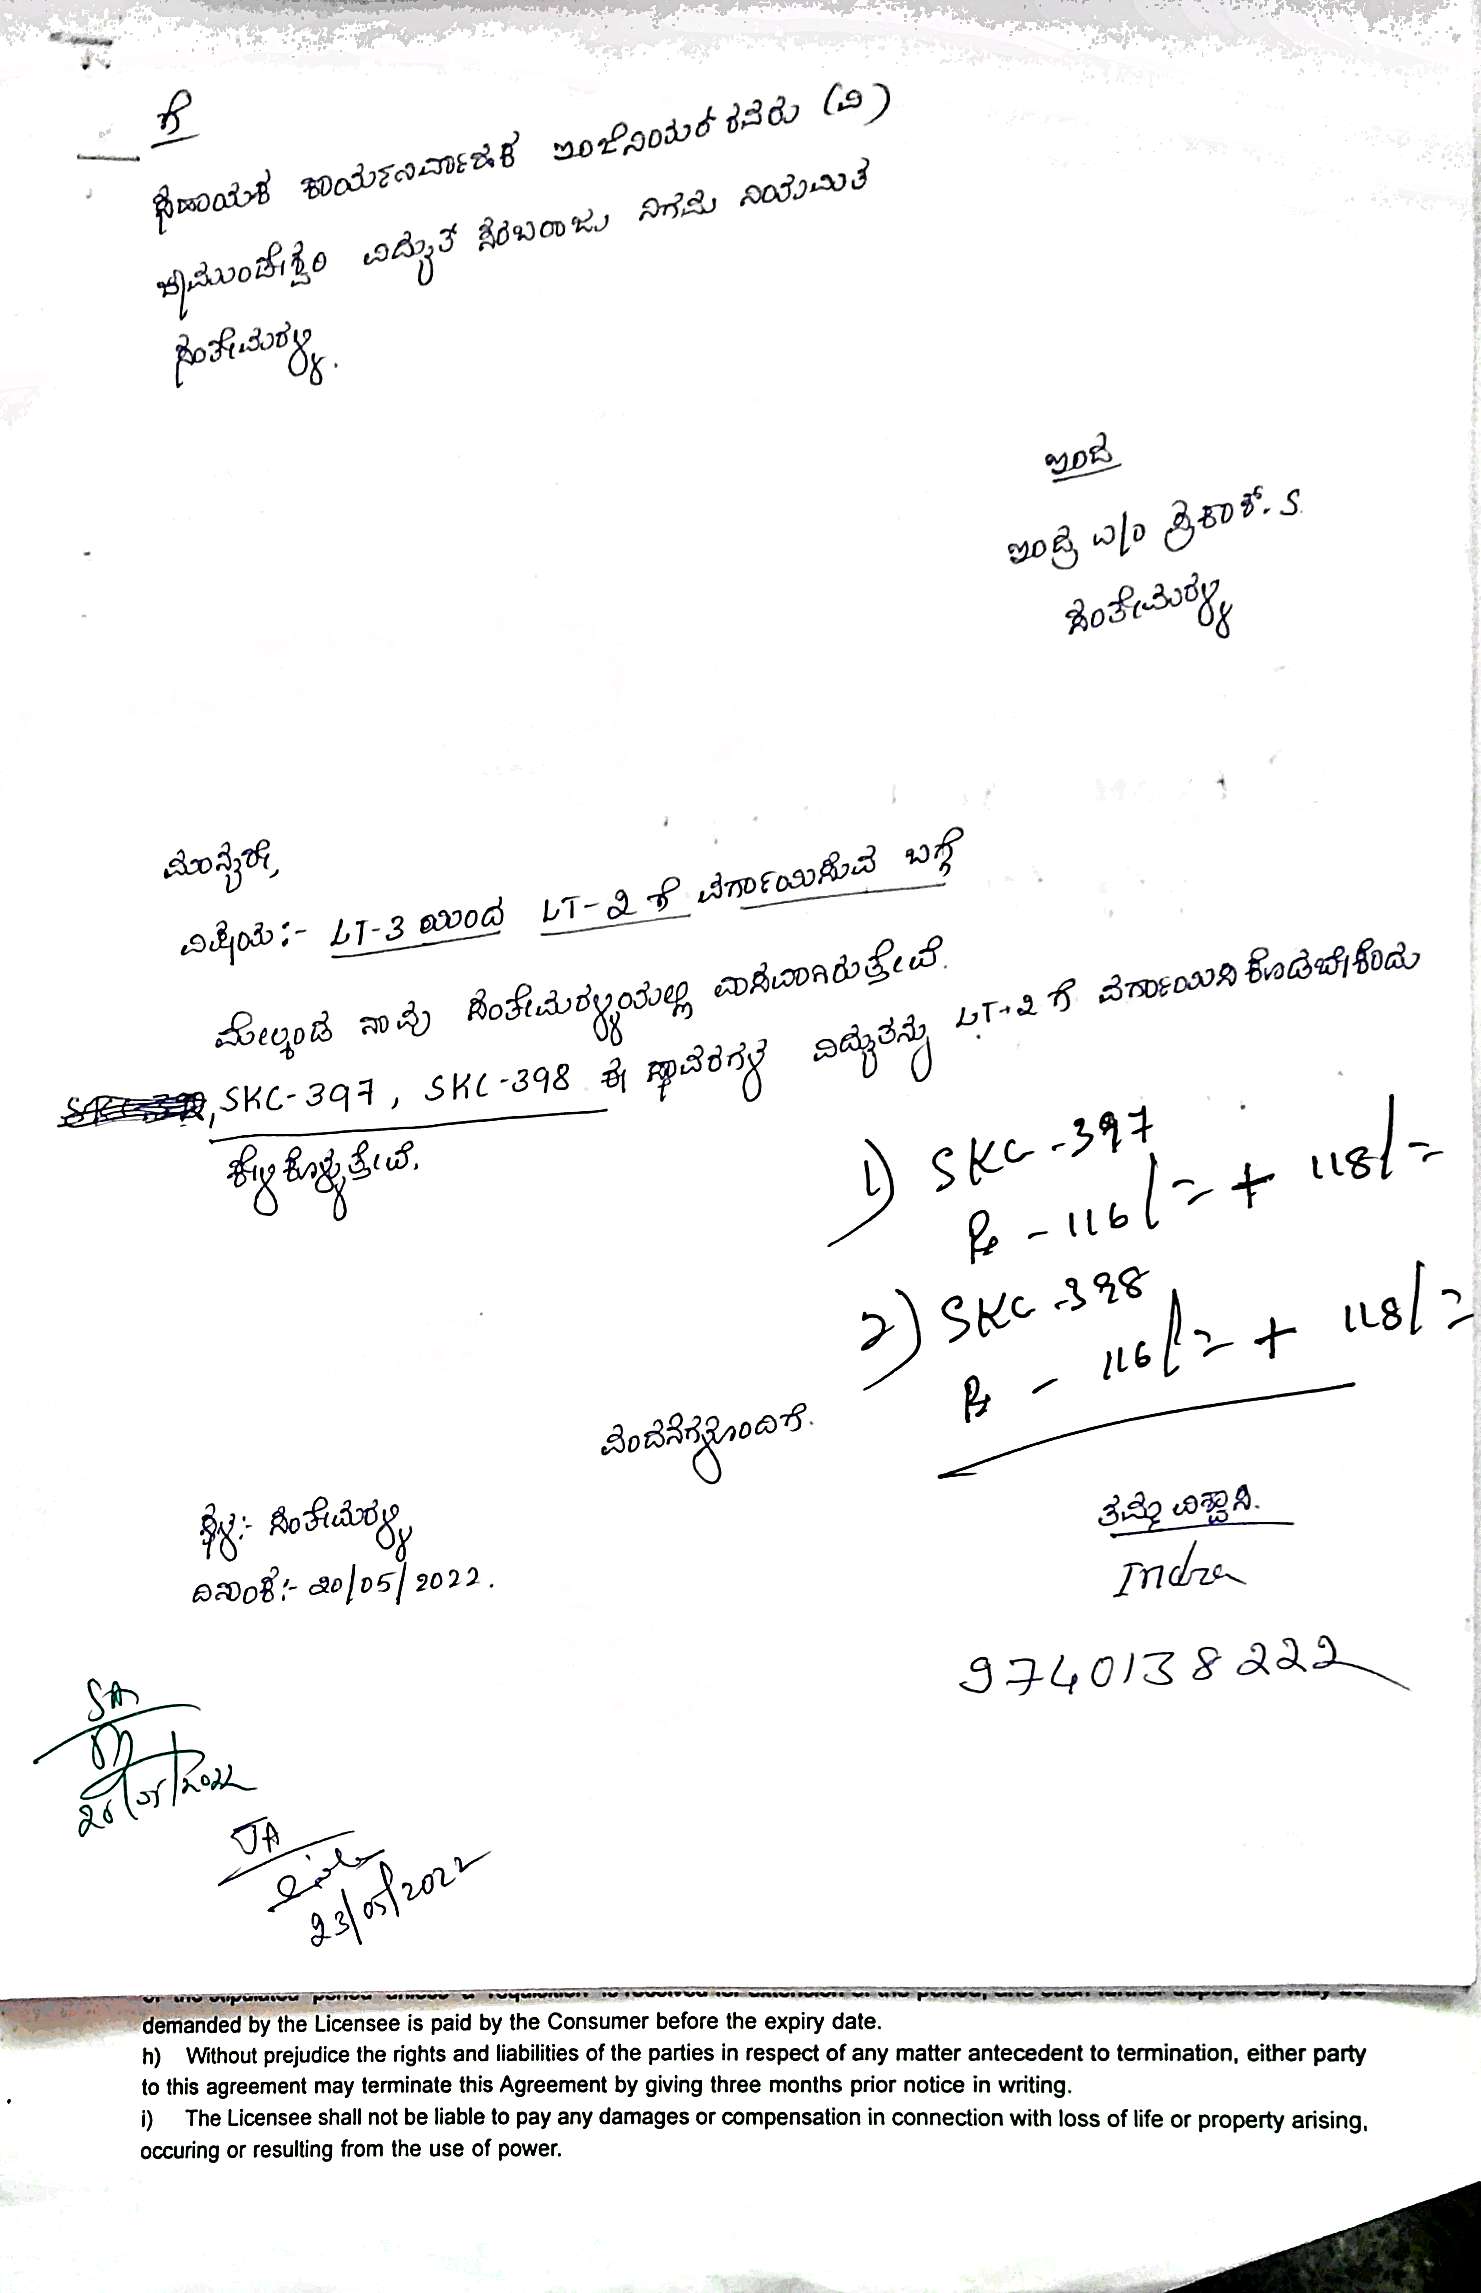 ಗೆ
ಸಹಾಯಕ ಕಾರ್ಯನಿರ್ವಾಹಕ ಇಂಜಿನಿಯರ್ ರವರು (ವಿ)
ಚಾಮುಂಡೇಶ್ವರಿ ವಿದ್ಯುತ್ ಸರಬರಾಜು ನಿಗಮ ನಿಯಮಿತ
ಸಂತೇಮರಳ್ಳಿ.
ಇಂದ
ಇಂದ್ರ ವ/ಾ ಪ್ರಕಾಶ್. S
ಸಂತೇಮರಳ್ಳಿ
ಮಾನ್ಯರೇ,
ವಿಷಯ:- LT-3 ಯಿಂದ LT-೨ ಕೆ ವರ್ಗಾಯಿಸುವ ಬಗ್ಗೆ
ಮೇಲ್ಕಂಡ ನಾವು ಸಂತೇಮರಳ್ಳಿಯಲ್ಲಿ ವಾಸವಾಗಿರುತ್ತೇವೆ.
SKC-397, SKC-398 ಈ ಸ್ಥಾವರಗಳ ವಿದ್ಯುತನ್ನು LT-೨ ಗೆ ವರ್ಗಾಯಿಸಿ ಕೊಡಬೇಕೆಂದು
ಕೇಳಿಕೊಳ್ಳುತ್ತೇವೆ.
1) SKC-397
Rs - 116/= + 118/=
2) SKC-398
Rs - 116/= + 118/=
ವಂದನೆಗಳೊಂದಿಗೆ.
ತಮ್ಮ ವಿಶ್ವಾಸಿ.
ಸ್ಥಳ:- ಸಂತೇಮರಳ್ಳಿ
ದಿನಾಂಕ:- ೨೦/05/2022.
Indra
9740138222
SA
JA
23/05/2022
demanded by the Licensee is paid by the Consumer before the expiry date.
h) Without prejudice the rights and liabilities of the parties in respect of any matter antecedent to termination, either party
to this agreement may terminate this Agreement by giving three months prior notice in writing.
i) The Licensee shall not be liable to pay any damages or compensation in connection with loss of life or property arising,
occuring or resulting from the use of power.